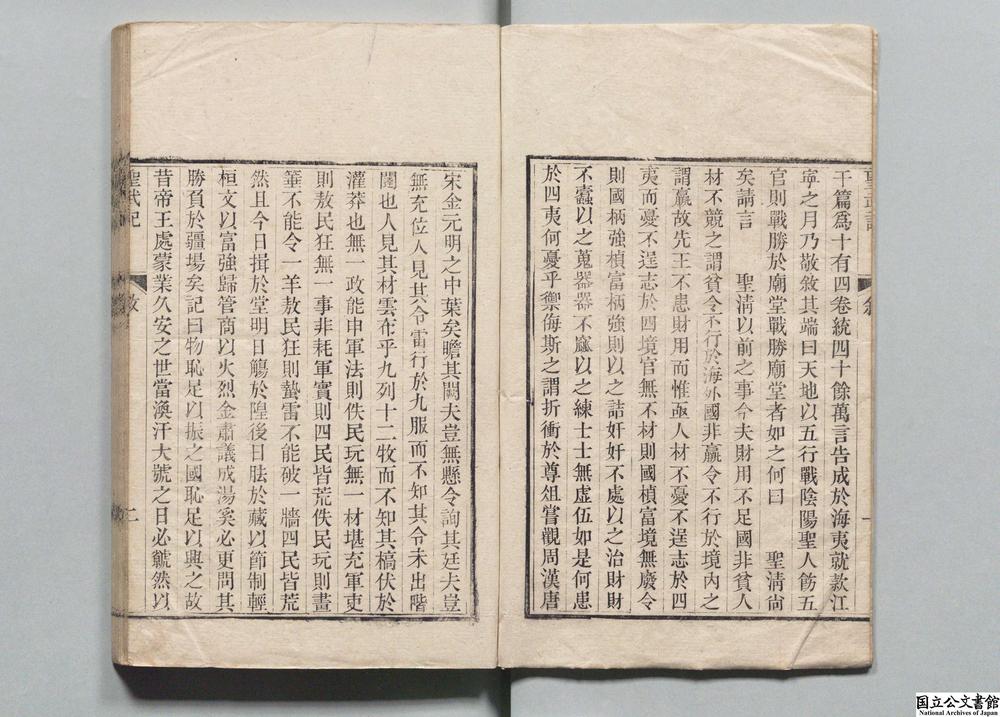 聖武記 敘 一
干篇爲十有四卷統四十餘萬言告成於海夷就款江
寧之月乃敬敘其端曰天地以五行戰陰陽聖人飭五
官則戰勝於廟堂戰勝廟堂者如之何曰 聖清尙
矣請言 聖清以前之事今夫財用不足國非貧人
材不競之謂貧令不行於海外國非羸令不行於境內之
謂羸故先王不患財用而惟亟人材不憂不逞志於四
夷而憂不逞志於四境官無不材則國楨富境無廢令
則國柄強楨富柄強則以之詰奸奸不處以之治財財
不蠹以之蒐器器不窳以之練士士無虛伍如是何患
於四夷何憂乎禦侮斯之謂折衝於尊俎嘗觀周漢唐
宋金元明之中葉矣瞻其闕夫豈無懸令詢其廷夫豈
無充位人見其令雷行於九服而不知其令未出階
闥也人見其材雲布乎九列十二牧而不知其槁伏於
灌莽也無一政能申軍法則佚民玩無一材堪充軍吏
則敖民狂無一事非耗軍實則四民皆荒佚民玩則畫
箠不能令一羊敖民狂則蟄雷不能破一牆四民皆荒
然且今日揖於堂明日觴於隍後日胠於藏以節制輕
桓文以富強歸管商以火烈金肅議成湯奚必更問其
勝負於疆場矣記曰物恥足以振之國恥足以興之故
昔帝王處蒙業久安之世當渙汗大號之日必虩然以
聖武記 敘 二
国立公文書館
National Archives of Japan